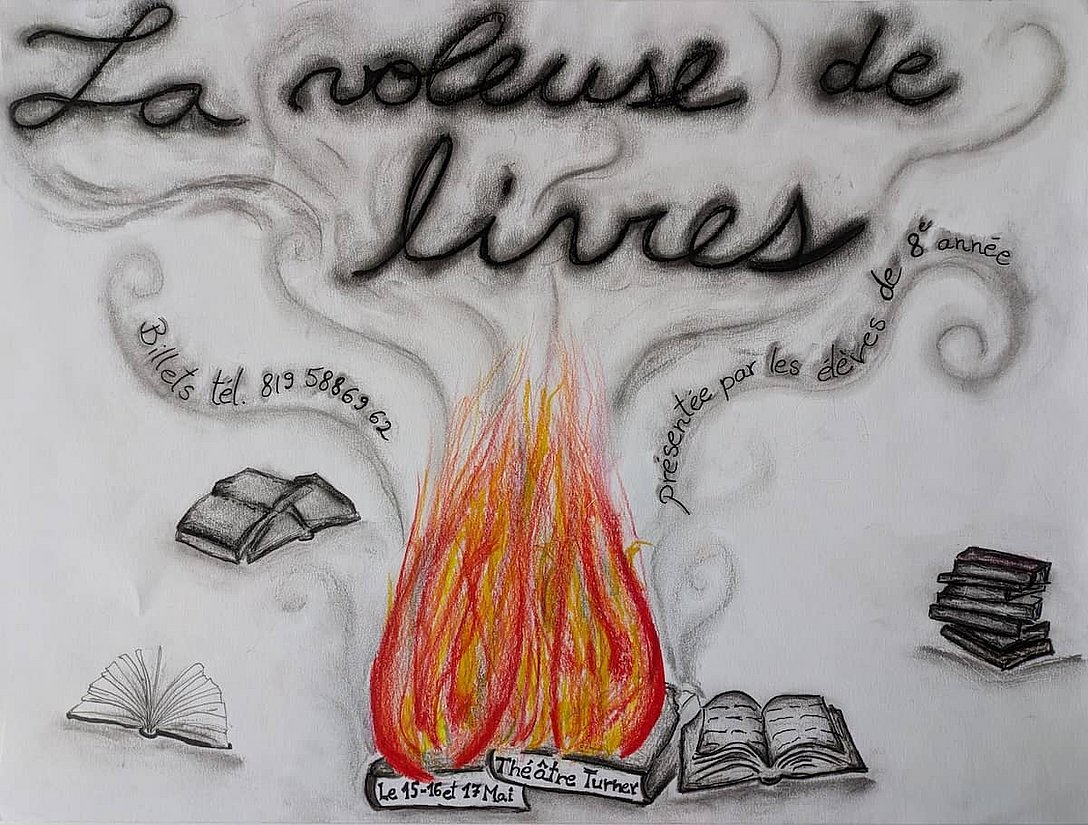 La voleuse de
livres
présentée par les élèves de 8e année
Billets tél. 819 5886962
Le 15-16 et 17 Mai
Théâtre Turner